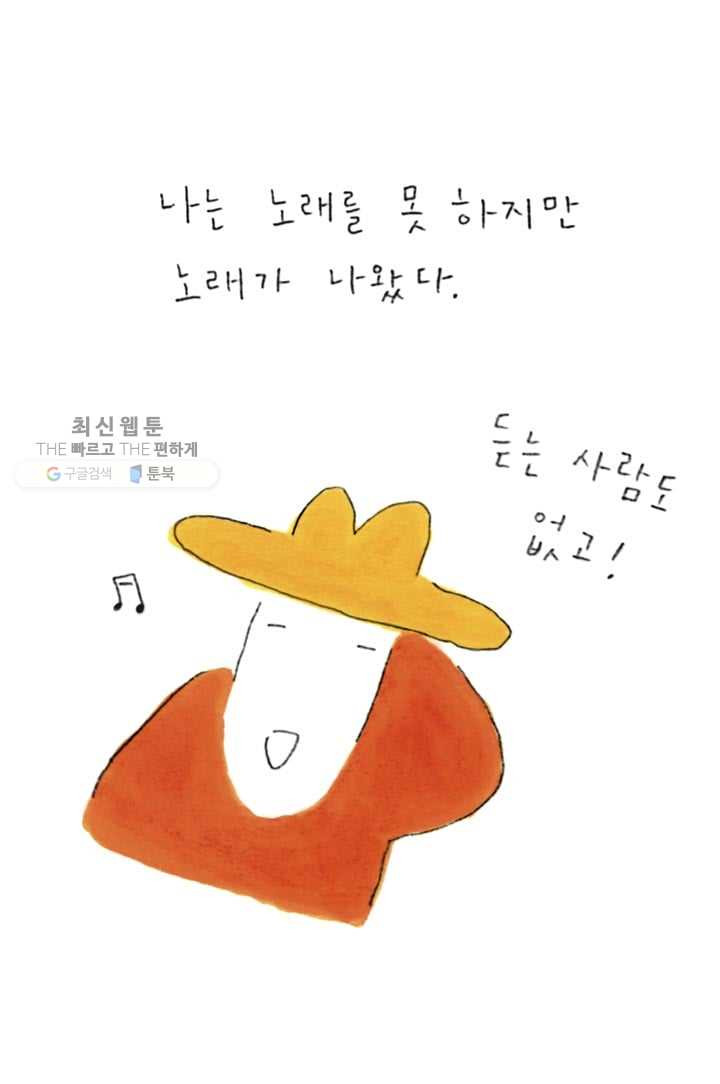 나는 노래를 못 하지만
노래가 나왔다.
최신웹툰
THE 빠르고 THE 편하게
구글검색 툰북
듣는 사람도
없고!